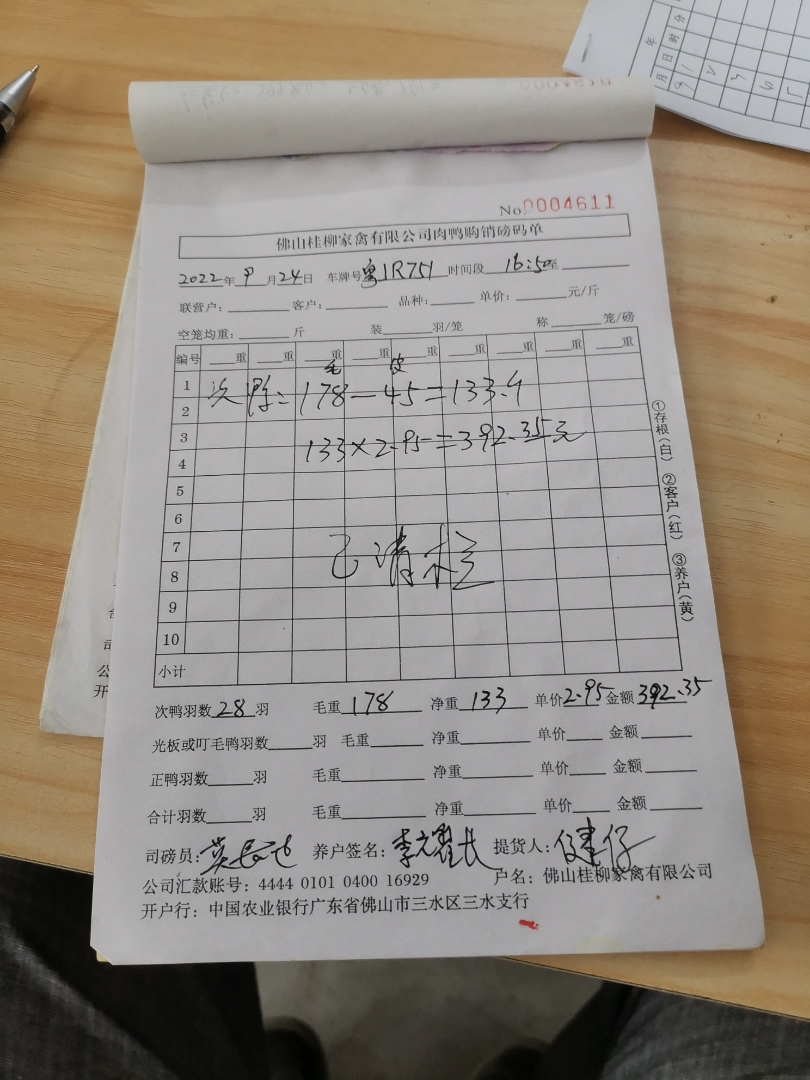 No 0004611
佛山桂柳家禽有限公司肉鸭购销磅码单
2022年 9月24日 车牌号 粤JR751 时间段 16:50 至
联营户: 客户: 品种: 单价: 元/斤
空笼均重: 斤 装 羽/笼 称 笼/磅
编号 重 重 重 重 重 重 重 重 重
毛 皮
1
次鸭: 178-45=133斤
2
3
133×2.95=392.35元
4
5
6
7
已清栏
8
9
10
小计
①存根(白) ②客户(红) ③养户(黄)
次鸭羽数 28 羽 毛重 178 净重 133 单价 2.95 金额 392.35
光板或叮毛鸭羽数 羽 毛重 净重 单价 金额
正鸭羽数 羽 毛重 净重 单价 金额
合计羽数 羽 毛重 净重 单价 金额
司磅员: 养户签名: 提货人:
公司汇款账号: 4444 0101 0400 16929 户名: 佛山桂柳家禽有限公司
开户行: 中国农业银行广东省佛山市三水区三水支行